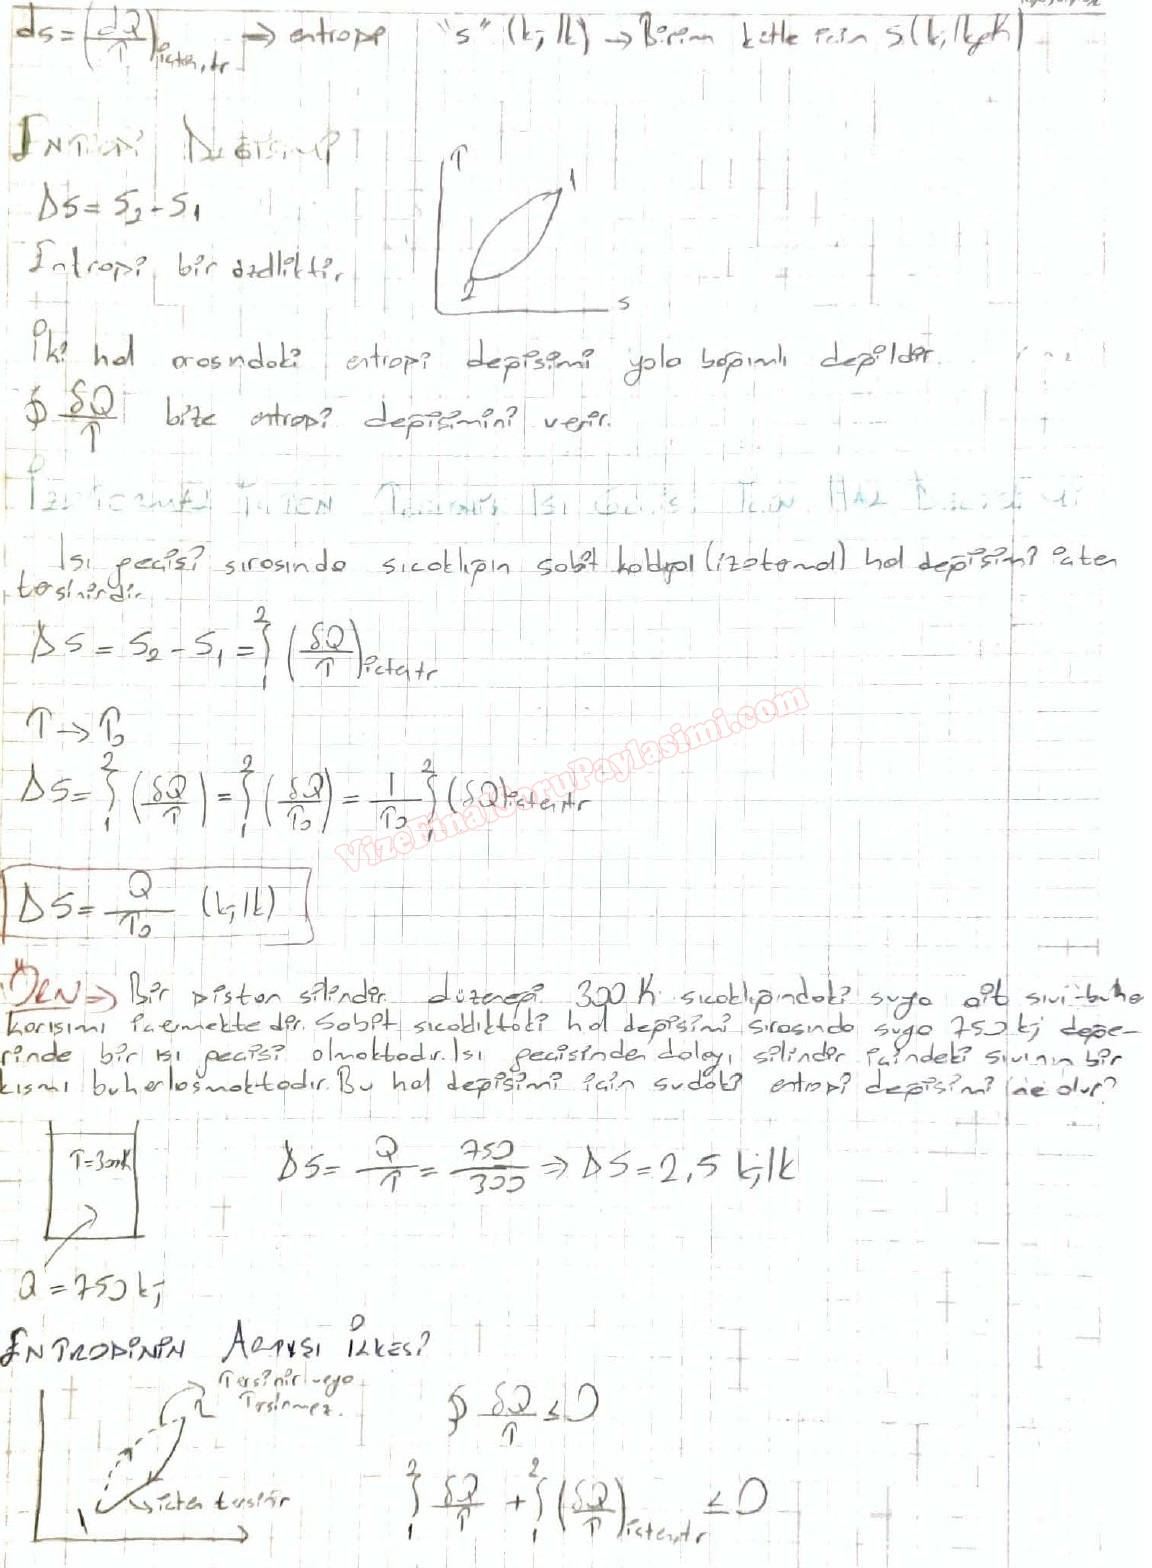 ds = (δQ/T)içten,tr → entropi "s" (kj/k) → Birim kütle için s (kj/kgK)
Entropi Değişimi
ΔS = S2 - S1
Entropi bir özelliktir.
T
1
2
s
İki hal arasındaki entropi değişimi yola bağımlı değildir.
∮ δQ/T bize entropi değişimini verir.
İzotermal İçten Tersinir Isı Geçişi İçin Hal Değişimi
Isı geçişi sırasında sıcaklığın sabit kaldığı (izotermal) hal değişimi içten
tersinirdir.
ΔS = S2 - S1 = ∫₁² (δQ/T)içten,tr
T → T0
ΔS = ∫₁² (δQ/T) = ∫₁² (δQ/T0) = 1/T0 ∫₁² (δQ)içten,tr
VizeFinalSoruPaylasimi.com
ΔS = Q/T0 (kj/k)
ÖRN ⇒ Bir piston silindir düzeneği 300 K sıcaklığındaki suya ait sıvı-buhar
karışımı içermektedir. Sabit sıcaklıktaki hal değişimi sırasında suya 750 kj değe-
rinde bir ısı geçişi olmaktadır. Isı geçişinden dolayı silindir içindeki sıvının bir
kısmı buharlaşmaktadır. Bu hal değişimi için sudaki entropi değişimi ne olur?
T=300K
ΔS = Q/T = 750/300 ⇒ ΔS = 2,5 kj/k
Q = 750 kj
Entropinin Artışı İlkesi
Tersinir veya
Tersinmez.
2
∮ δQ/T ≤ 0
içten tersinir
1
∫₁² δQ/T + ∫₁² (δQ/T)içten,tr ≤ 0